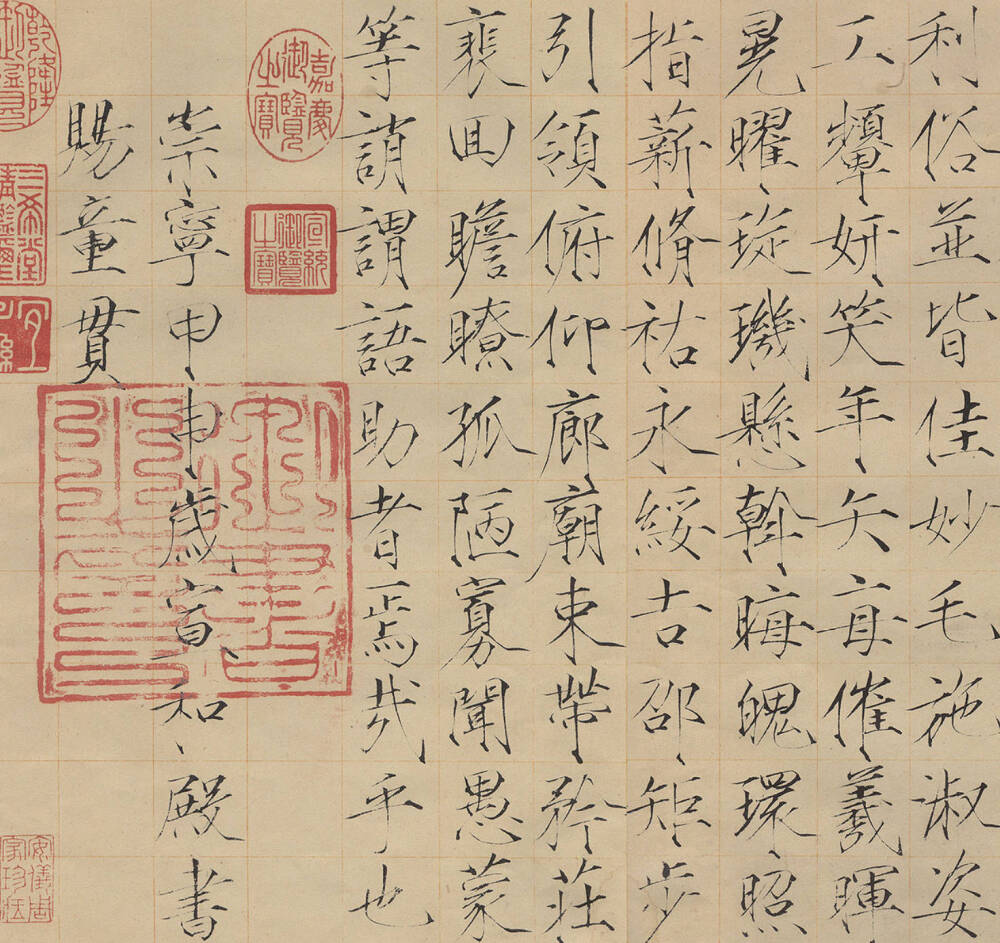 利俗並皆佳妙毛施淑姿
工顰妍笑年矢每催羲暉
晃曜琁璣懸斡晦魄環照
指薪脩祐永綏吉邵矩步
引領俯仰廊廟束帶矜莊
裵回瞻瞭孤陋寡聞愚蒙
等誚謂語助者焉哉乎也
嘉慶御覽之寶
宣統御覽之寶
崇寧甲申歲宣和殿書
賜童貫
乾隆御覽
三希堂
安儀周家珍藏